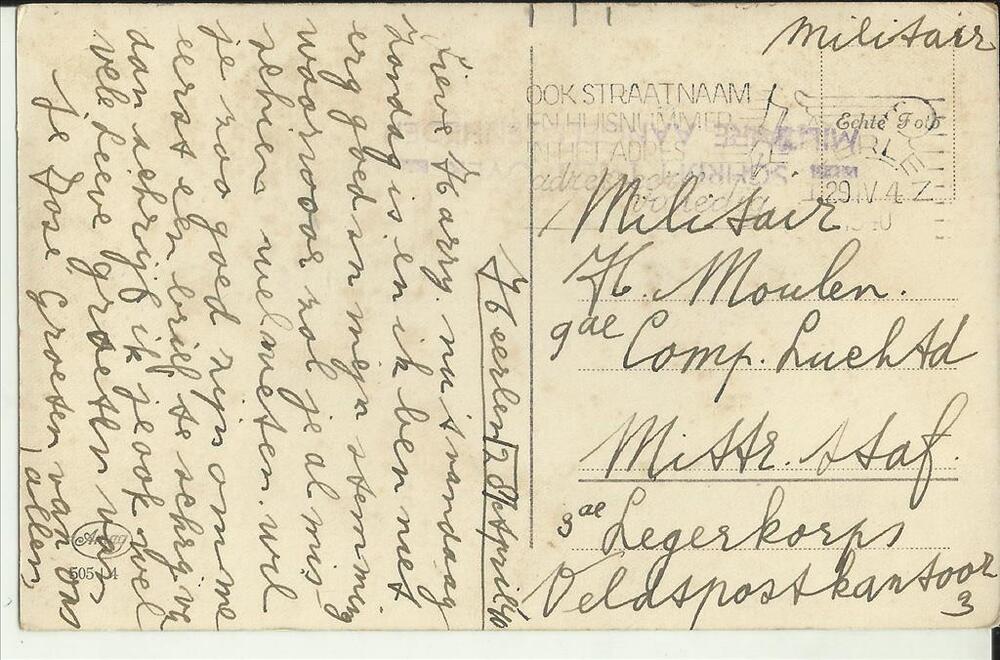 Heerlen 28 April 40
Lieve Harry. nu t vandaag
Zondag is en ik ben niet
erg goed in mijn stemming
waarvoor zal je al mis-
schien wel weten. wil
je zoo goed zijn om me
eerst een brief te schrijven
dan schrijf ik je ook wel
vele lieve groeten van
je José. Groeten van ons
allen,
Amag
505
Militair
OOK STRAATNAAM
EN HUISNUMMER
IN HET ADRES
Echte Foto
29.IV.4-Z
1940
Militair
H. Moulen.
9de Comp. Luchtd
Mittr. staf.
3de Legerkorps
Veldpostkantoor
3